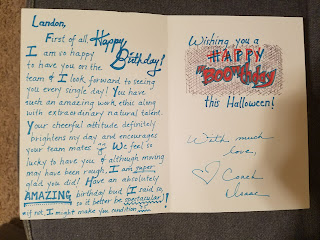 Landon,
First of all, Happy
Birthday!
I am so happy
to have you on the
team & I look forward to seeing
you every single day! You have
such an amazing work ethic along
with extraordinary natural talent.
Your cheerful attitude definitely
brightens my day and encourages
your team mates. We feel so
lucky to have you & although moving
may have been rough, I am super
glad you did! Have an absolutely
AMAZING birthday bud (I said so,
so it better be spectacular)!
if not, I might make you condition
Wishing you a
HAPPY
BOOrthday
this Halloween!
With much
love,
Coach